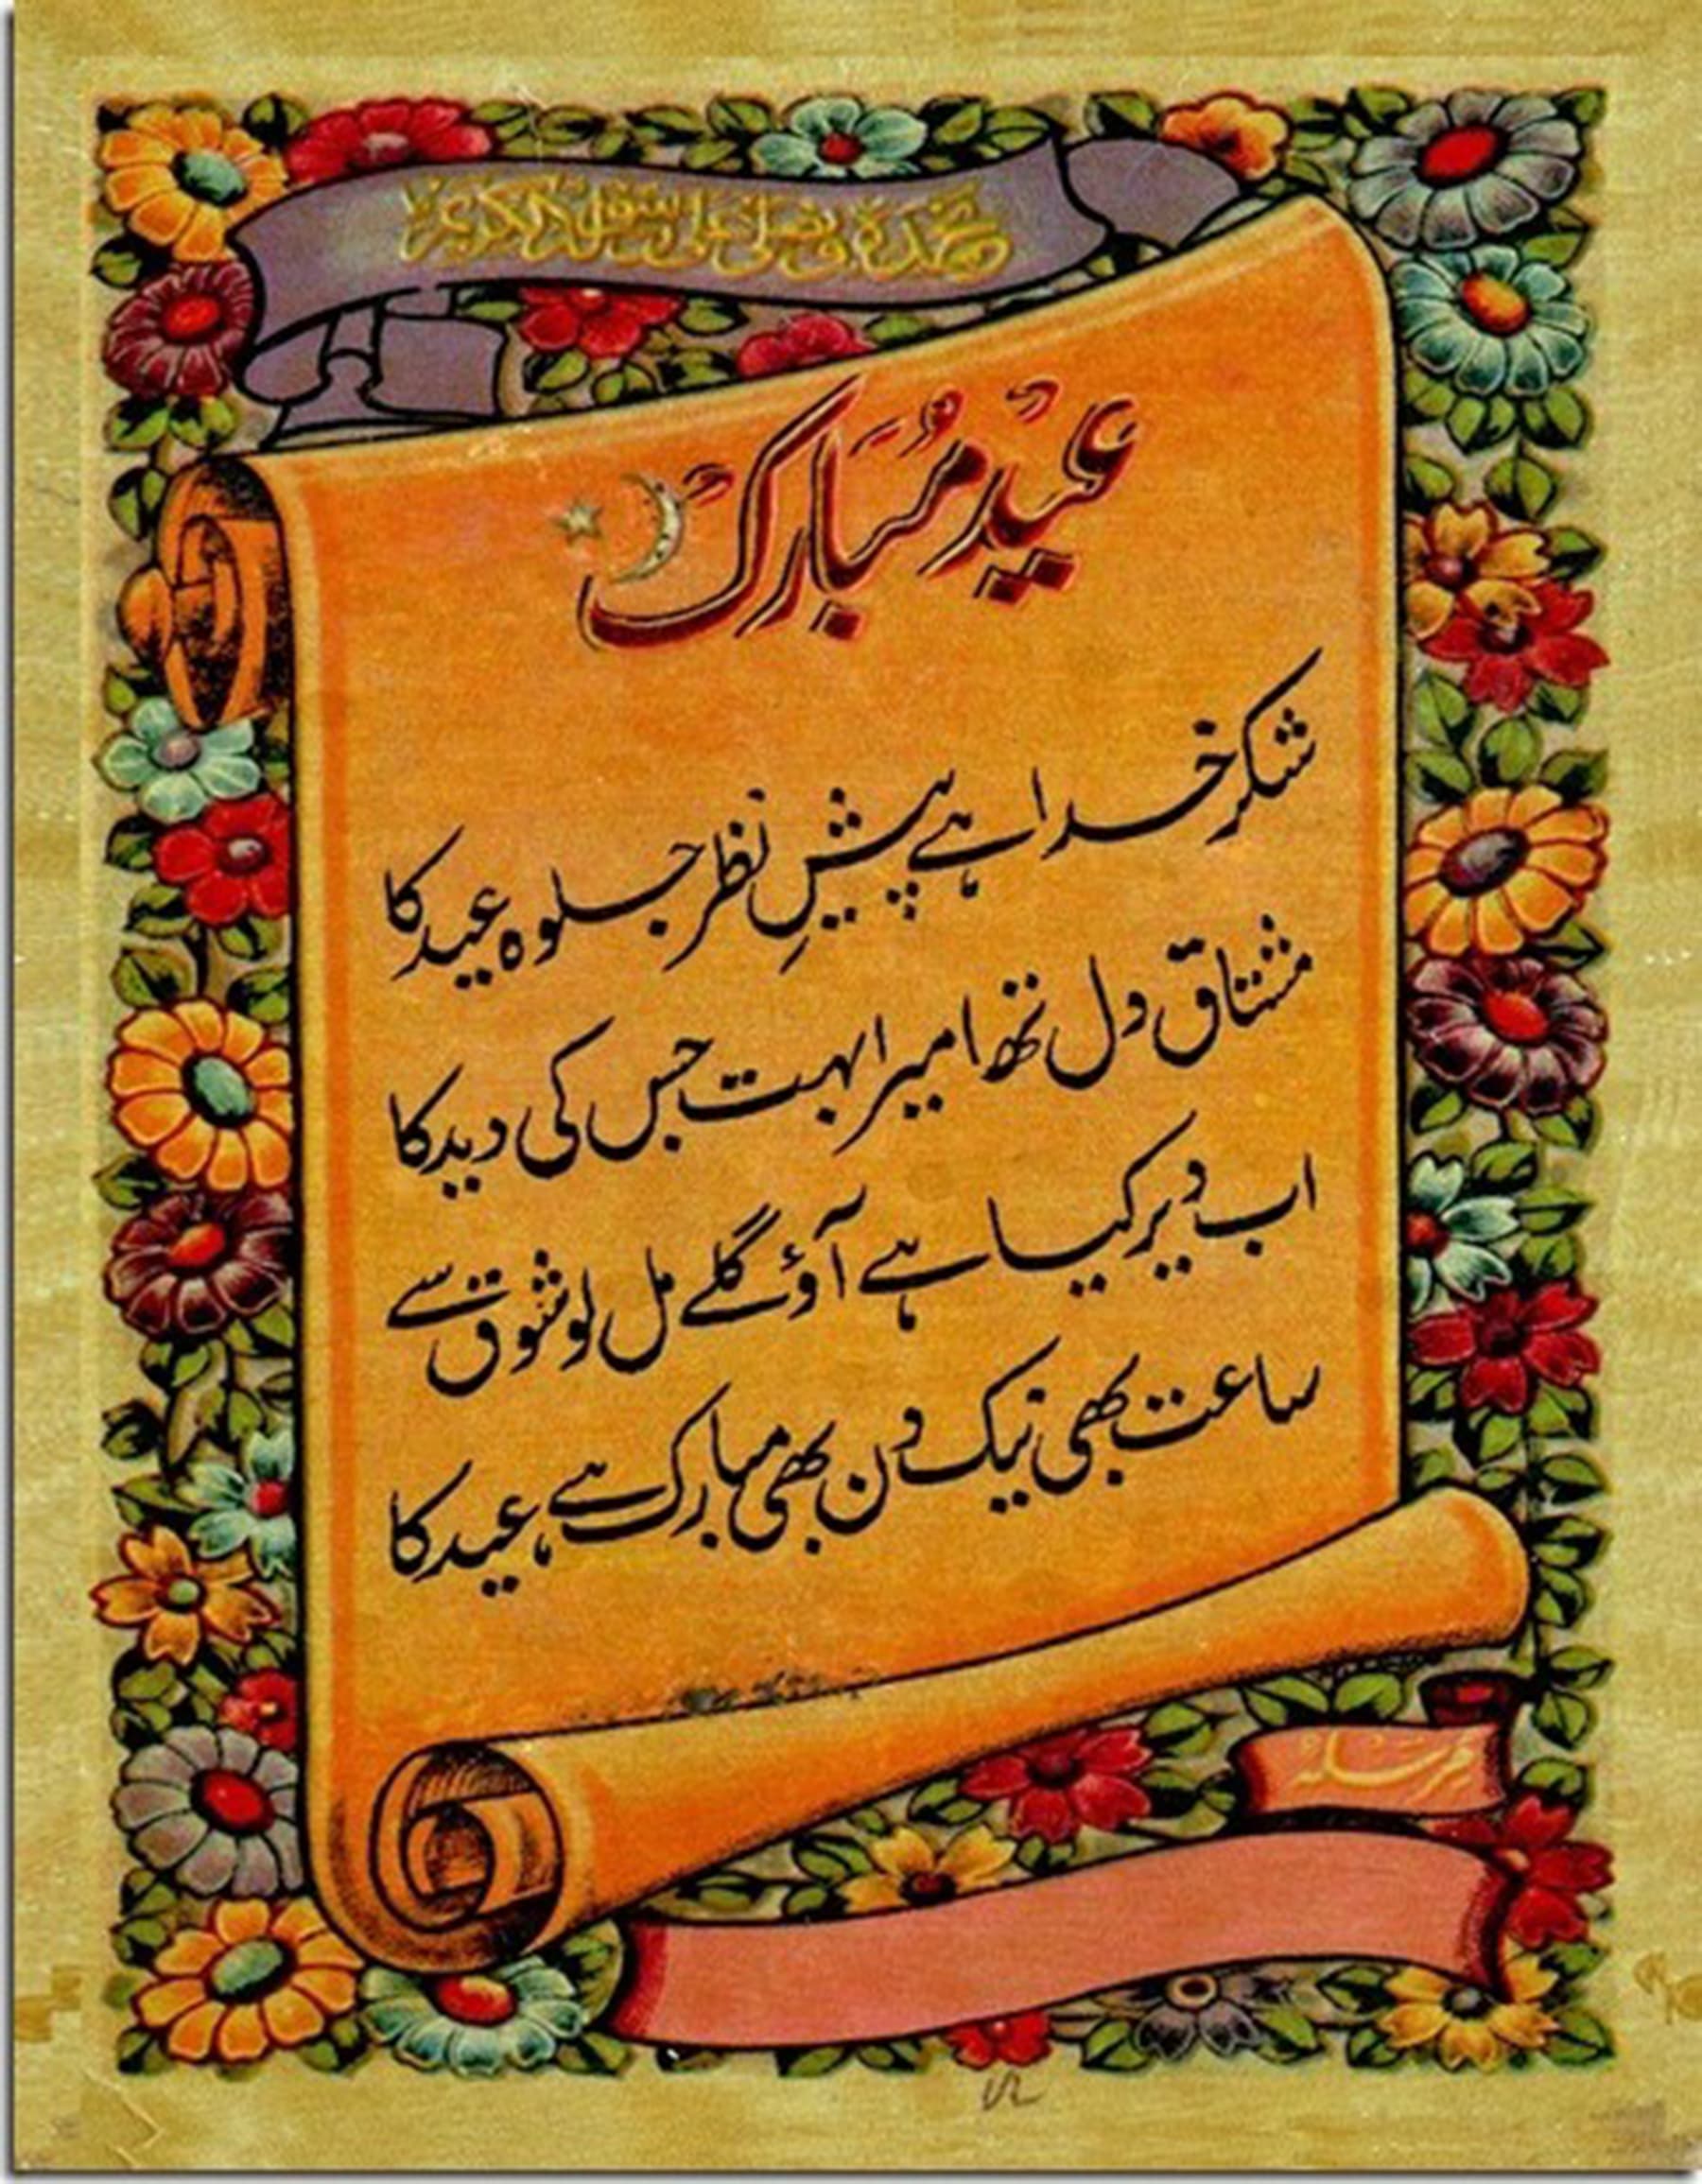 نحمدہ و نصلی علی رسولہ الکریم
عید مُبارک
شکر خدا ہے پیشِ نظر جلوہ عید کا
مشتاق دل تھا میرا بہت جس کی دید کا
اب دیر کیا ہے آؤ گلے مل لو شوق سے
ساعت بھی نیک دن بھی مبارک ہے عید کا
مرسلہ